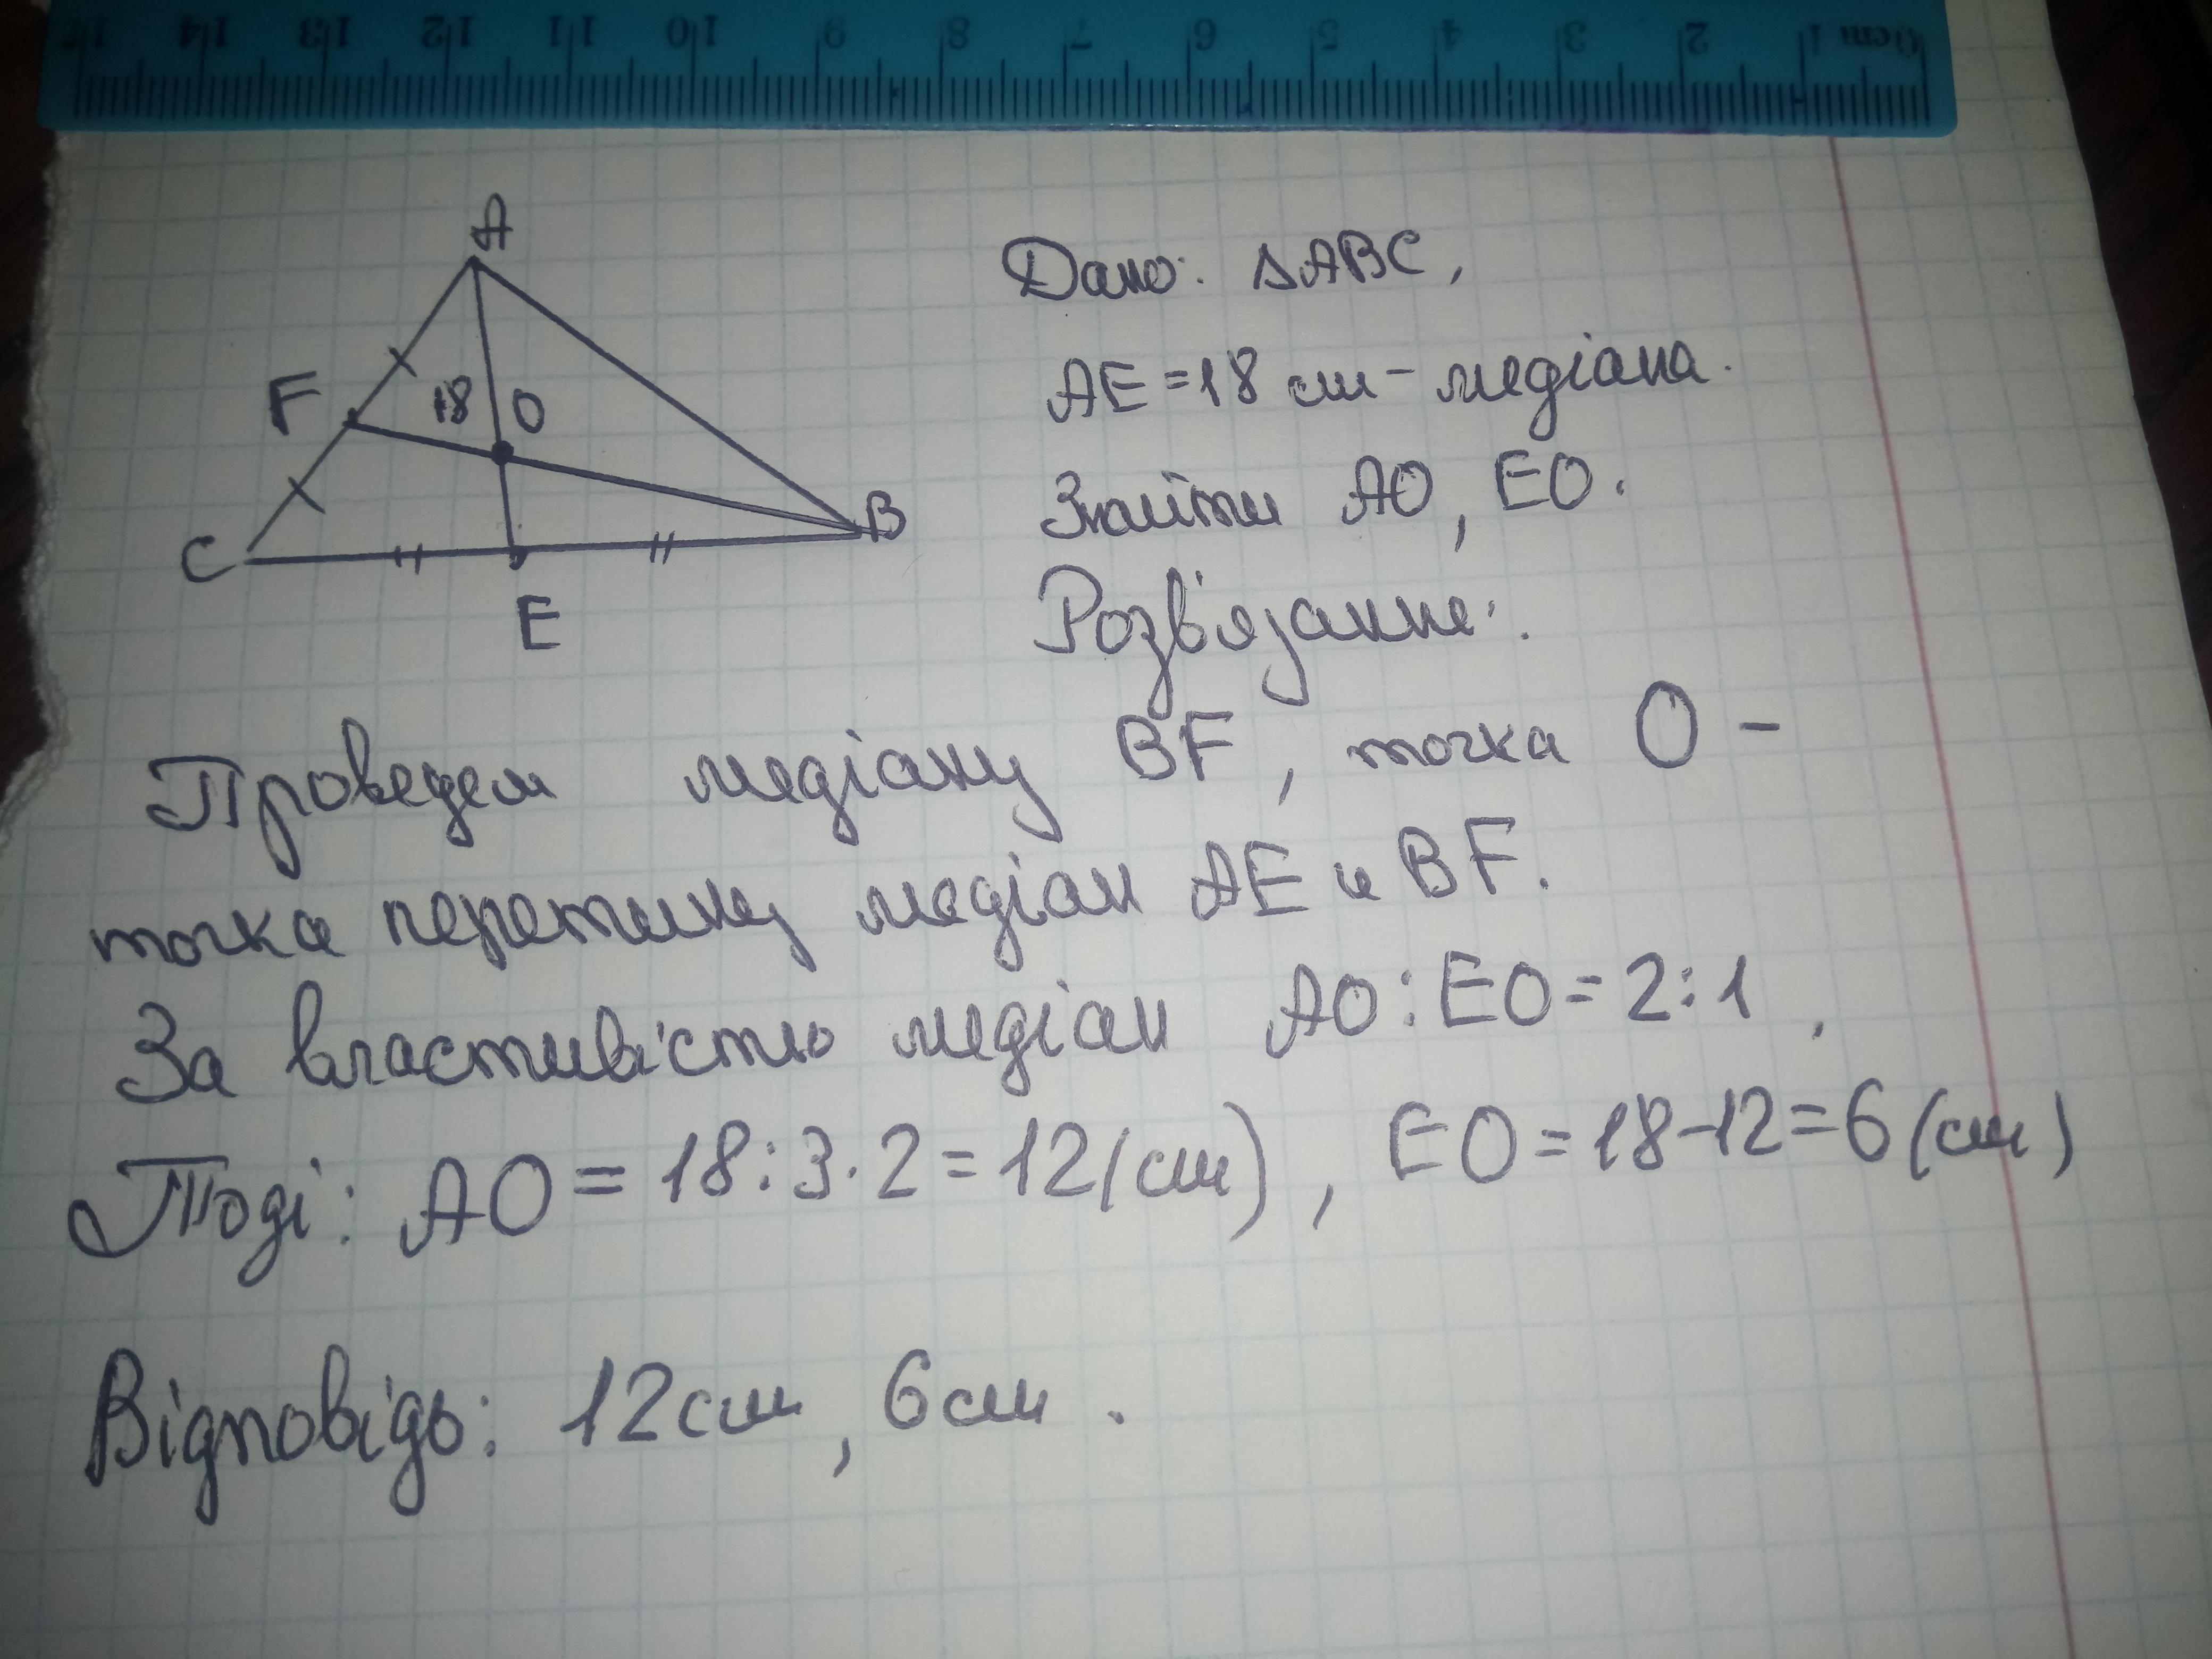 15 14 13 12 11 10 9 8 7 6 5 4 3 2 1 0cm
A
F
18
O
C
B
E
Дано: ΔABC,
AE=18 см - медіана.
Знайти AO, EO.
Розв'язання:
Проведем медіану BF, точка O -
точка перетину медіан AE и BF.
За властивістю медіан AO:EO=2:1,
Тоді: AO = 18:3·2=12(см), EO=18-12=6(см)
Відповідь: 12см, 6см.